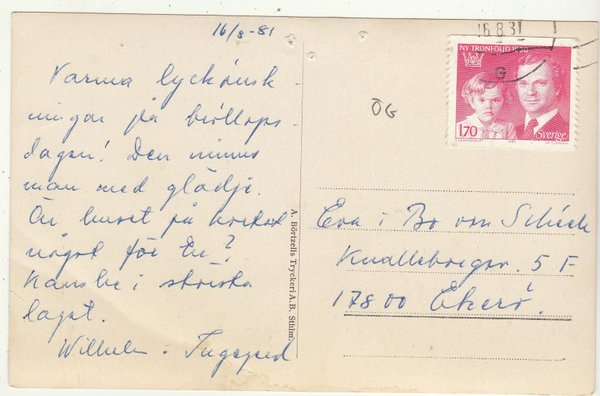 16/8-81
Varma lyckönsk-
ningar på bröllops-
dagen! Den minns
man med glädje.
Är huset på kortet
något för Er?
Kanske i största
laget.
Wilhelm
A. Börtzells Tryckeri A.B. Sthlm.
16.8.81
NY TRONFÖLJD 1980
170
Sverige
ÖG
Eva i Bo von Scheele
5 F
17800 Ekerö.